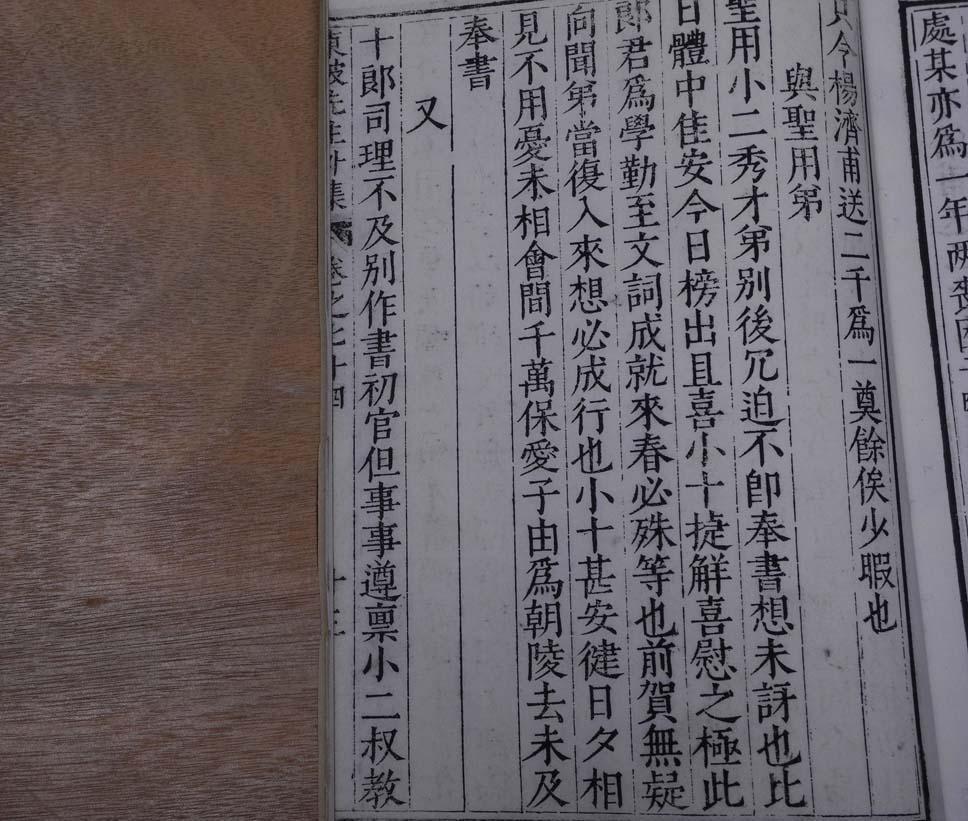 處某亦爲一年兩喪
則今楊濟甫送二千爲一奠餘俟少暇也
與聖用弟
聖用小二秀才弟別後冗迫不卽奉書想未訝也比
日體中佳安今日榜出且喜小十捷解喜慰之極此
郞君爲學勤至文詞成就來春必殊等也前賀無疑
向聞弟當復入來想必成行也小十甚安健日夕相
見不用憂未相會間千萬保愛子由爲朝陵去未及
奉書
又
十郞司理不及別作書初官但事事遵禀小二叔教
東坡先生外集 卷之七十四 十三